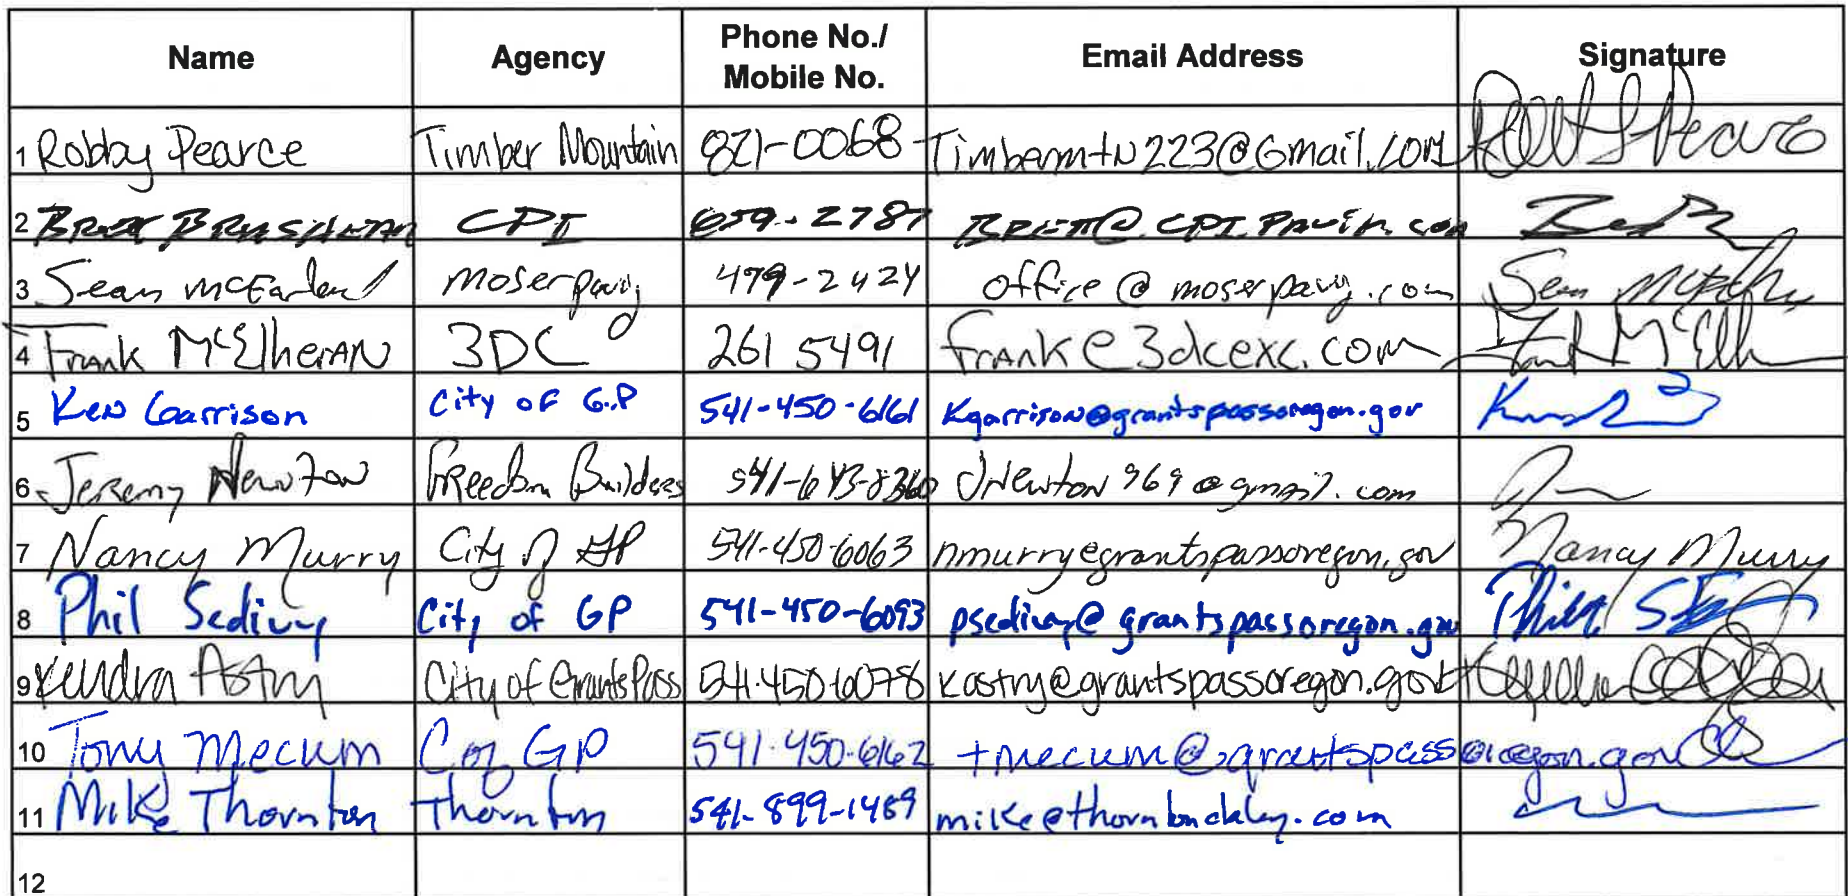 Name Agency Phone No./ Mobile No. Email Address Signature
1 Robby Pearce Timber Mountain 821-0068 Timbermtn223@Gmail.com
2 CPI 659-2787
3 Sean McFarland moserpaving 479-2424 office@moserpaving.com
4 Frank McElheran 3DC 261 5491 frank@3dcexc.com Frank McElh
5 Ken Garrison City of G.P 541-450-6161 Kgarrison@grantspassoregon.gov
6 Jeremy Newton Freedom Builders 541-643-8360 JNewton969@gmail.com
7 Nancy Murry City of GP 541-450-6063 nmurry@grantspassoregon.gov Nancy Murry
8 Phil Sedivy City of GP 541-450-6093 psedivy@grantspassoregon.gov
9 Kendra Astry City of Grants Pass 541-450-6078 kastry@grantspassoregon.gov
10 Tony Mecum C of GP 541-450-6162 tmecum@grantspassoregon.gov
11 Mike Thornton Thornton 541-899-1489
12